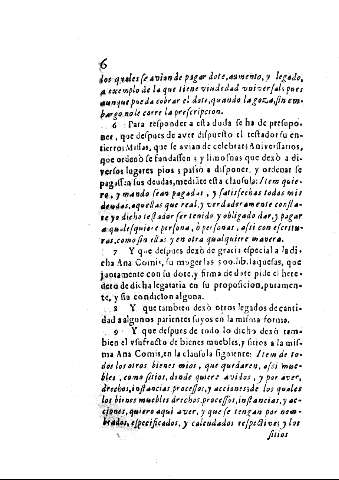 6
dos quales se avian de pagar dote, aumento, y legado,
a exemplo de la que tiene viudedad vniversal; pues
aunque pueda cobrar el dote, quando la goza, sin em-
bargo no le corre la prescripcion.
6 Para responder a esta duda se ha de presupo-
ner, que despues de aver dispuesto el testador su en-
tierro, Missas, que se avian de celebrar; Aniversarios,
que ordenò se fundassen; y limosnas que dexò a di-
versos lugares pios; passò a disponer, y ordenar se
pagassen sus deudas, mediãte esta clausula: Item quie-
ro, y mando sean pagadas, y satisfechas todas mis
deudas, aquellas que real, y verdaderamente consta-
re yo dicho testador ser tenido y obligado dar, y pagar
a qualesquiere persona, ò personas, assi con escritu-
ras, como sin ellas y en otra qualquiere manera.
7 Y que despues dexò de gracia especial a la di-
cha Ana Comis, su muger las 500. lib. Iaquesas, que
juntamente con su dote, y firma de dote pide el here-
dero de dicha legataria en su proposicion, puramen-
te, y sin condicion alguna.
8 Y que tambien dexò otros legados de canti-
dad a algunos parientes suyos en la misma forma.
9 Y que despues de todo lo dicho dexò tam-
bien el vsufructo de bienes muebles, y sitios a la mis-
ma Ana Comis, en la clausula siguiente: Item de to-
dos los otros bienes mios, que quedaren, assi mue-
bles, como sitios, donde quiere avidos, y por aver,
drechos, instancias processos, y acciones; de los quales
los bienes muebles drechos, processos, instancias, y ac-
ciones, quiero aqui aver, y que se tengan por nom-
brados, especificados, y calendados respectivè; y los
sitios